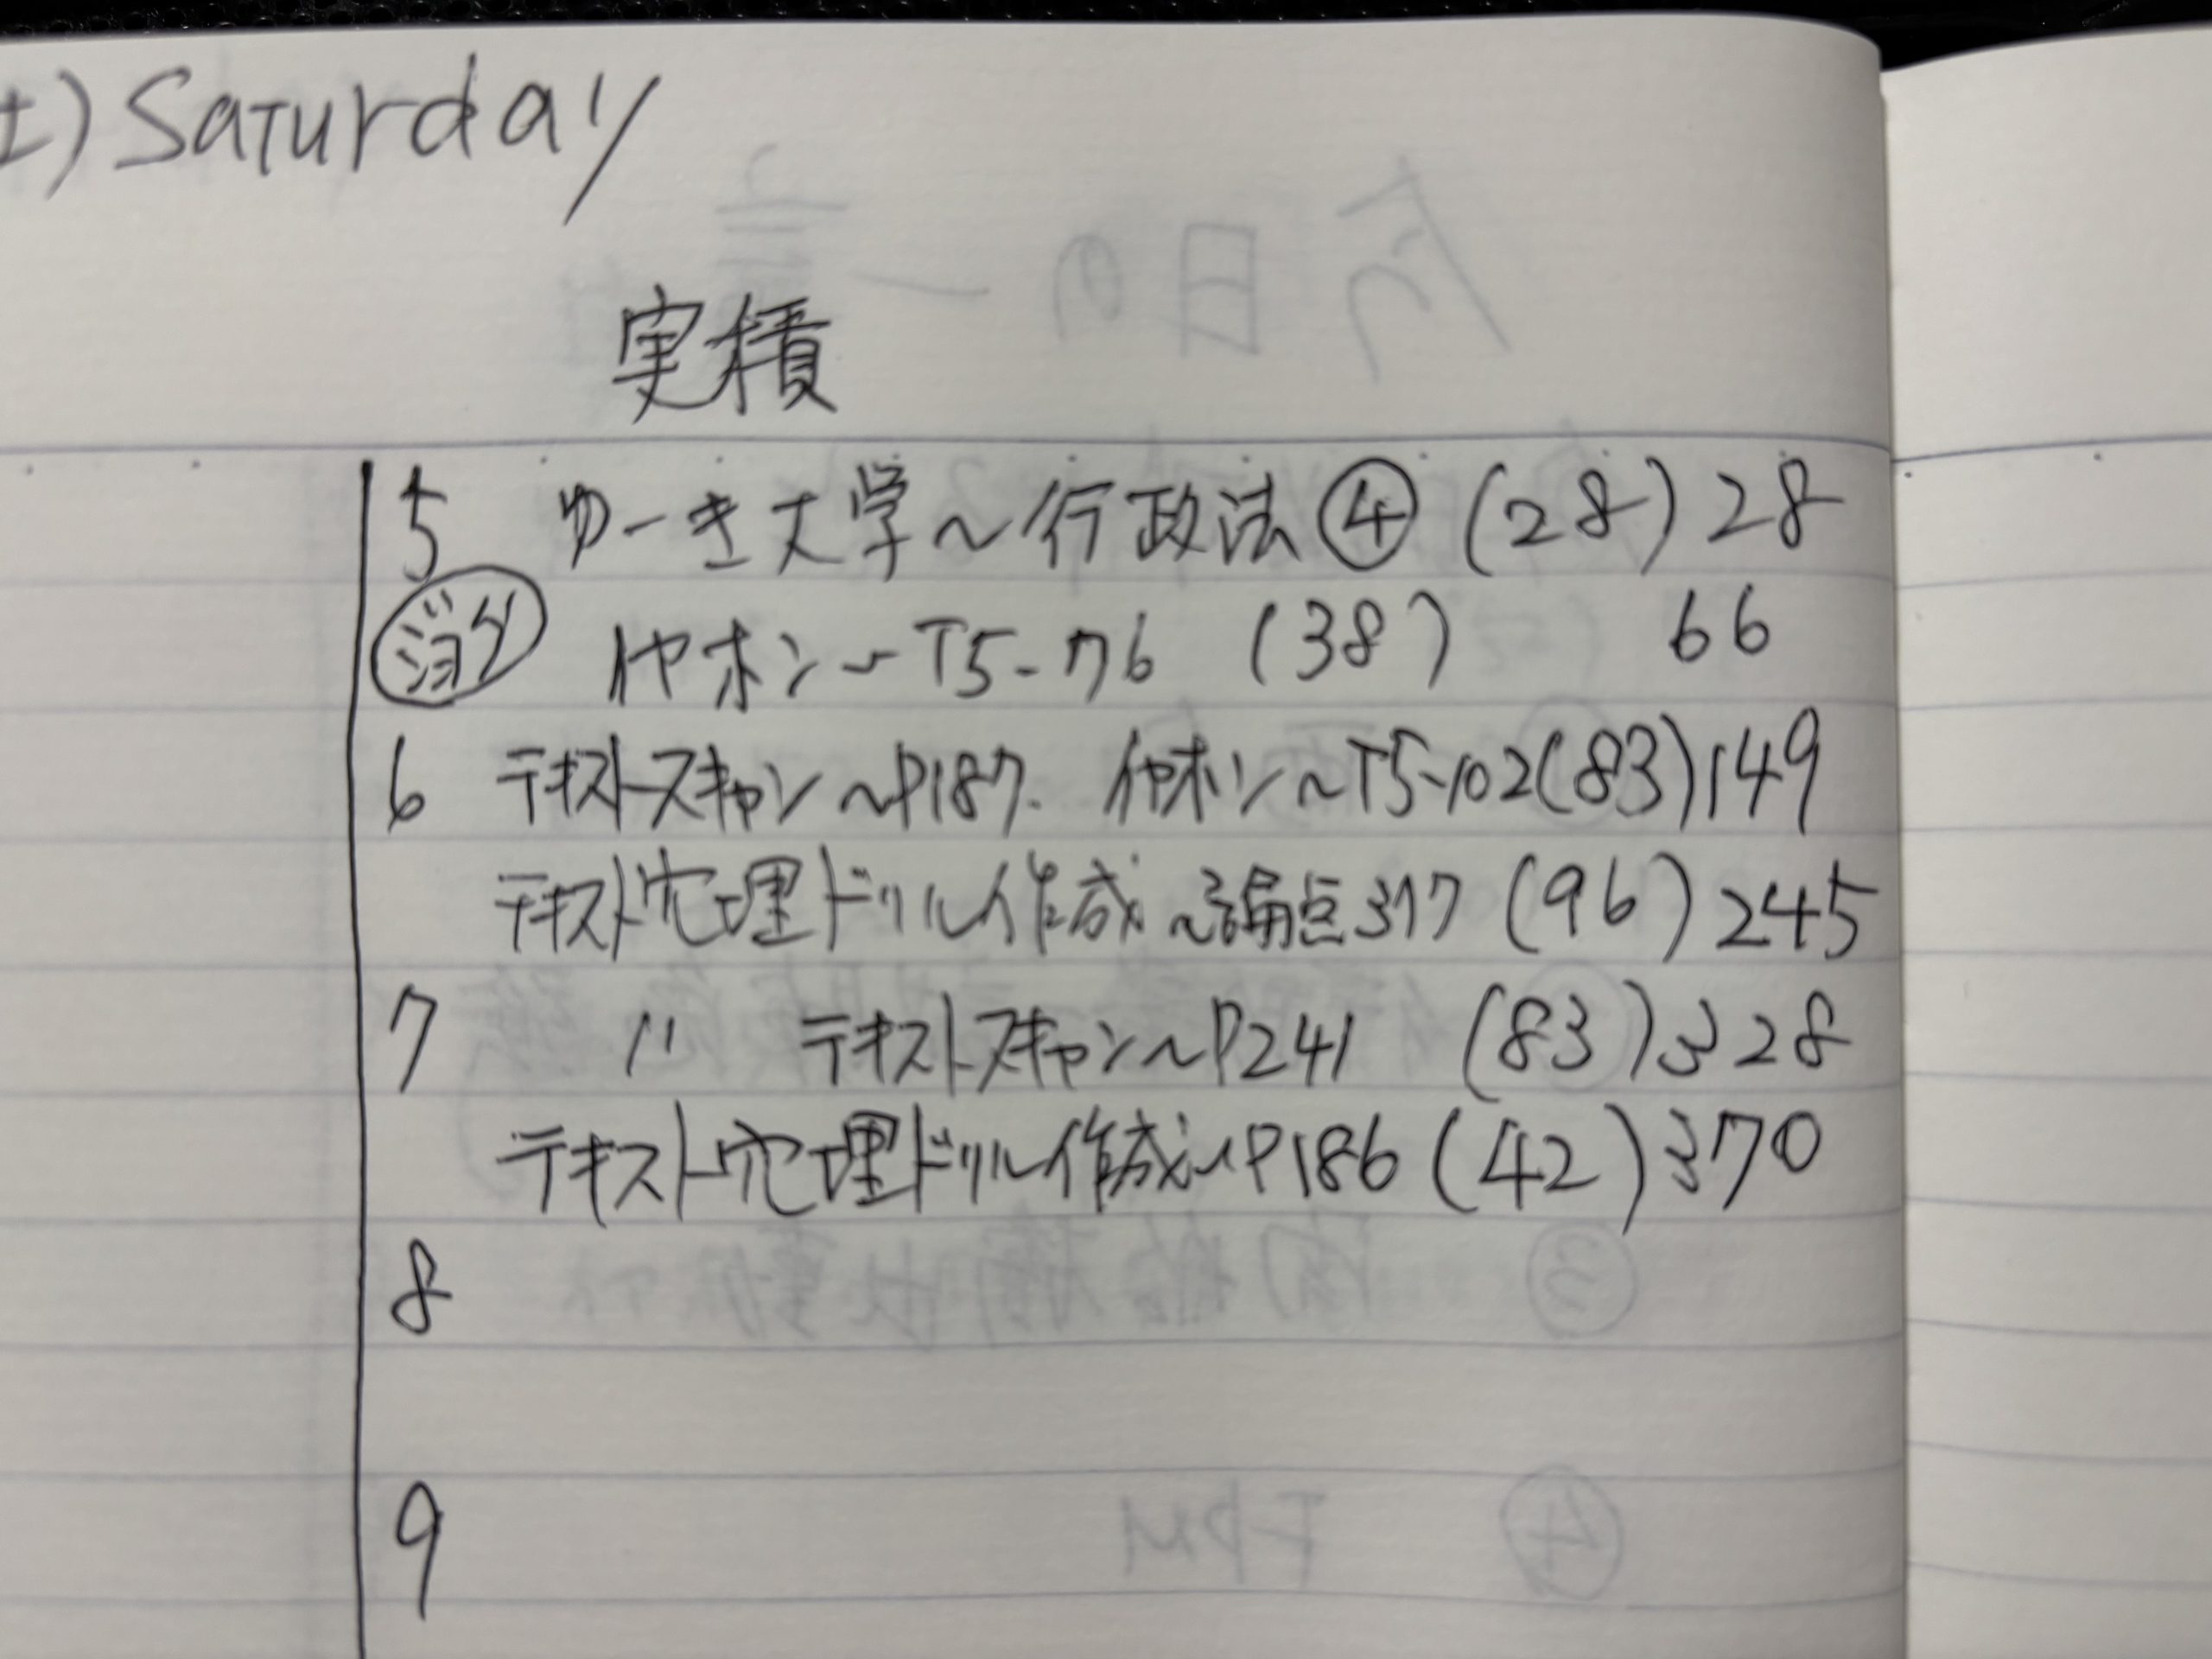 土) Saturday
実積
5 ゆーき大学〜行政法④ (28) 28
ジョグ イヤホン〜T5-76 (38) 66
6 テキストスキャン〜P187. イヤホン〜T5-102 (83) 149
テキスト穴埋ドリル作成〜論点317 (96) 245
7 〃 テキストスキャン〜P241 (83) 328
テキスト穴埋ドリル作成〜P186 (42) 370
8
9